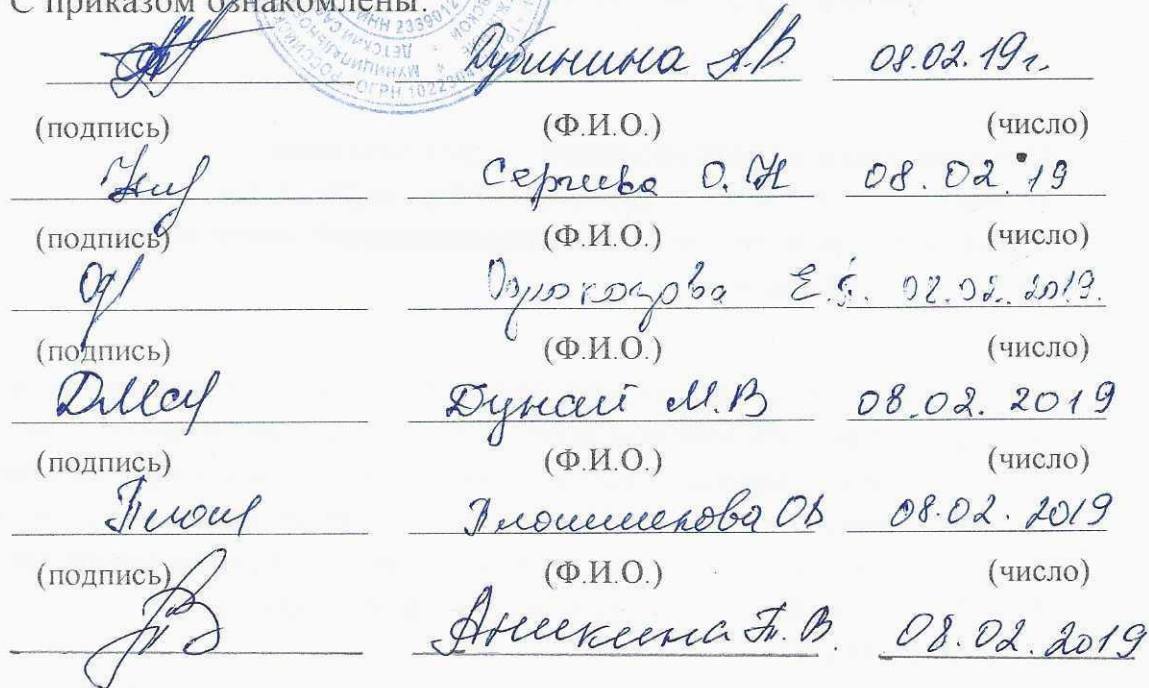 С приказом ознакомлены:
Дубинина А.В. 08.02.19г.
(подпись) (Ф.И.О.) (число)
О.Н 08.02.19
(подпись) (Ф.И.О.) (число)
Е. 08.02.2019.
(подпись) (Ф.И.О.) (число)
Дунай М.В 08.02.2019
(подпись) (Ф.И.О.) (число)
ОВ 08.02.2019
(подпись) (Ф.И.О.) (число)
Аникина Т.В. 08.02.2019